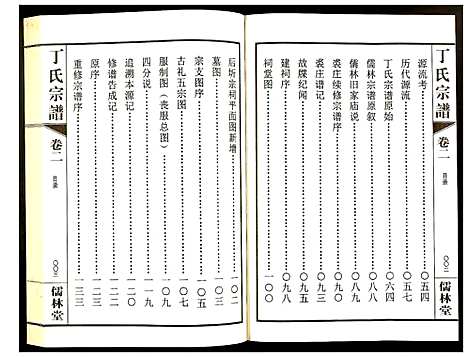 丁氏宗譜
卷二
目录
〇〇三
儒林堂
源流考……〇五四
历代源流……〇五七
丁氏宗谱原始……〇六四
儒林宗谱原叙……
儒林旧家庙说……
裘庄续修宗谱序……
裘庄谱记……
故牒纪闻……
建祠序……〇九八
祠堂图……一〇〇
后圻宗祠平面图新增……一〇二
墓图……
宗支图序……一〇五
古礼五宗图……
服制图（丧服总图）……
四分说……一一九
追溯本源记……
修谱告成记……
原序……
重修宗谱序……一三三
丁氏宗譜
卷二
目录
〇〇三
儒林堂